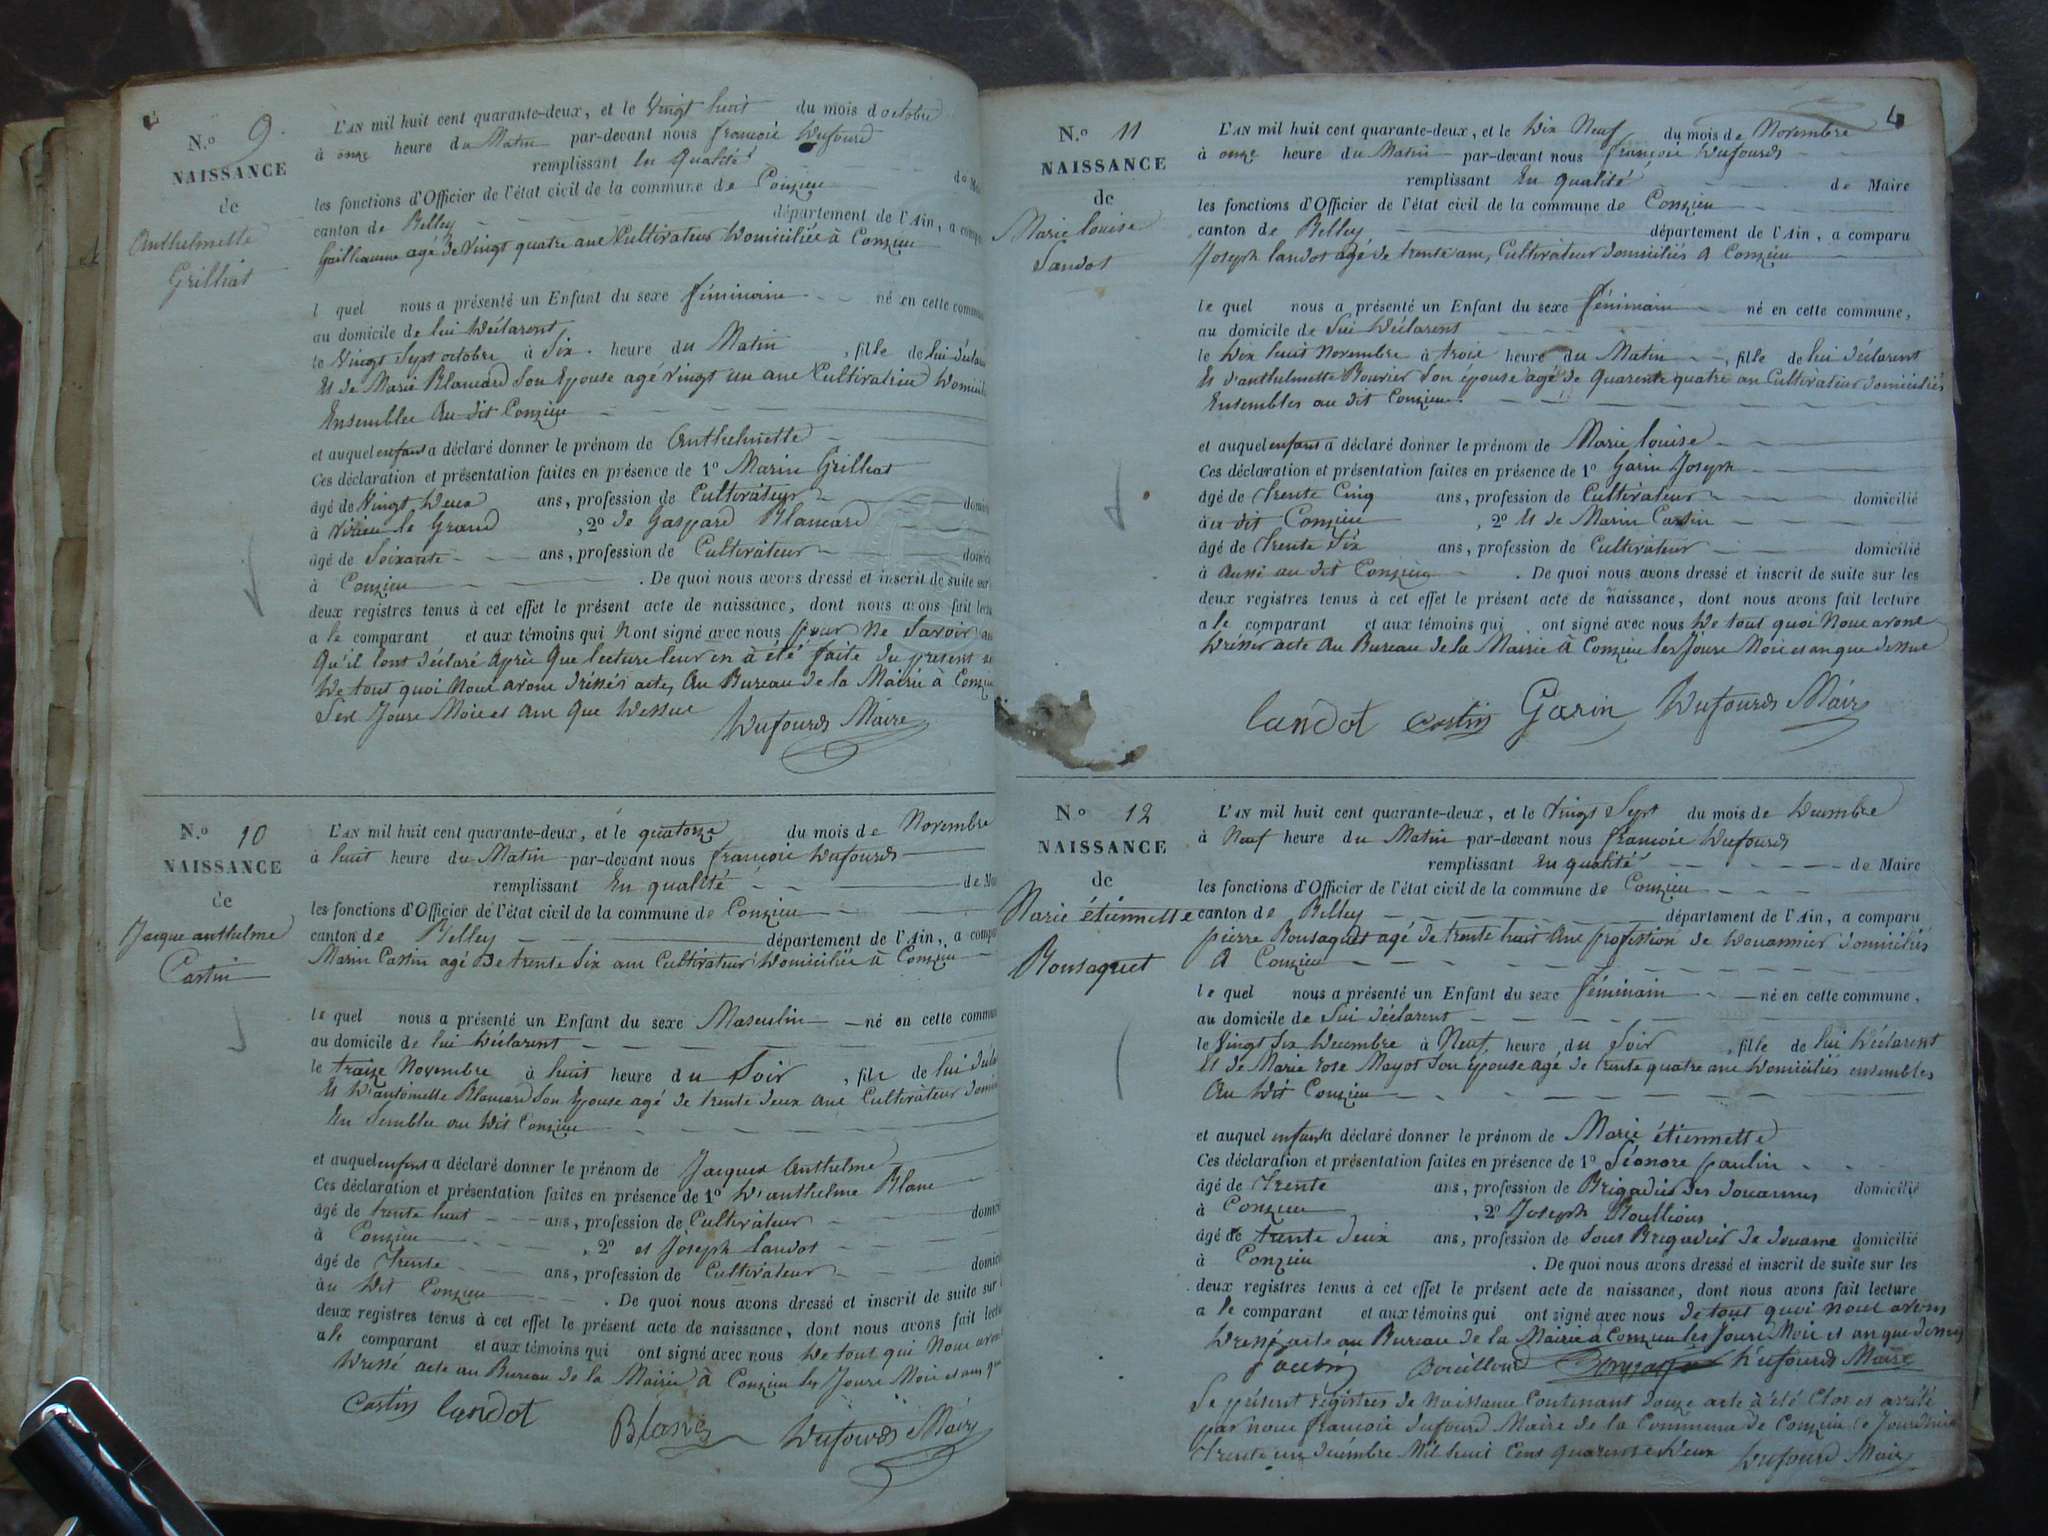 N.o 9.
NAISSANCE
de
Anthelmette
Grilliat
L'AN mil huit cent quarante-deux, et le Vingt huit du mois d octobre
à onze heure du Matin par-devant nous françois Dufourd
remplissant En Qualité de
les fonctions d'Officier de l'état civil de la commune de Conzieu
canton de Belley département de l'Ain, a
agé de Vingt quatre ans Cultivateur Domiciliée à Conzieu
l quel nous a présenté un Enfant du sexe féminin né en cette
au domicile de lui Déclarent
le Vingt Sept octobre à Six heure du Matin , fille de lui
Et de Marie Blancard Son Epouse agé vingt un ans
Ensembles Au dit Conzieu
et auquel enfant a déclaré donner le prénom de Anthelmette
Ces déclaration et présentation faites en présence de 1o Marin Grilliat
âgé de Vingt Deux ans, profession de Cultivateur
à Virieu le Grand , 2o de Gaspard Blancard
âgé de Soixante ans, profession de Cultivateur
à Conzieu . De quoi nous avons dressé et inscrit de suite sur
deux registres tenus à cet effet le présent acte de naissance, dont nous avons fait
a le comparant et aux témoins qui Nont signé avec nous pour Ne Savoir
Qu'il lont déclaré Après Que lecture leur en à été faite du present
De tout quoi Nous avons dréssés acte, Au Bureau de la Mairie à
Les Jours Mois et An Que Dessus
Dufourd Maire
N.o 10
NAISSANCE
de
Jacque anthelme
Castin
L'AN mil huit cent quarante-deux, et le quatorze du mois de Novembre
à huit heure du Matin par-devant nous françois Dufourd
remplissant En qualité de
les fonctions d'Officier de l'état civil de la commune de Conzieu
canton de Belley département de l'Ain, a
Marin Castin agé De trente Six ans Cultivateur Domiciliée à Conzieu
le quel nous a présenté un Enfant du sexe Masculin né en cette
au domicile de lui Déclarent
le traize Novembre à huit heure du Soir , fils de lui
Et D'antoinette Blancard Son Epouse agé de trente deux ans Cultivateur
En Sembles au Dit Conzieu
et auquel enfant a déclaré donner le prénom de Jacques Anthelme
Ces déclaration et présentation faites en présence de 1o D'anthelme Blanc
âgé de trente huit ans, profession de Cultivateur
à Conzieu , 2o et Joseph Landot
âgé de Trente ans, profession de Cultivateur
àu Dit Conzieu . De quoi nous avons dressé et inscrit de suite sur
deux registres tenus à cet effet le présent acte de naissance, dont nous avons fait
a le comparant et aux témoins qui ont signé avec nous De tout qui Nous
Dressé acte au Bureau de la Mairie à Conzieu les Jours Mois et an que
Castin Landot
Blanc Dufourd Maire
4
N.o 11
NAISSANCE
de
Marie louise
Landot
L'AN mil huit cent quarante-deux, et le Dix Neuf du mois de Novembre
à onze heure du Matin par-devant nous françois Dufourd
remplissant En qualité de Maire
les fonctions d'Officier de l'état civil de la commune de Conzieu
canton de Belley département de l'Ain, a comparu
Joseph landot agé de trente ans, Cultivateur domiciliés à Conzieu
le quel nous a présenté un Enfant du sexe féminain né en cette commune,
au domicile de Lui Déclarent
le Dix huit Novembre à trois heure du Matin , fille de lui déclarent
Et d'anthelmette Bouvier Son épouse agé de Quarente quatre an Cultivateur domiciliés
Ensembles au dit Conzieu.
et auquel enfant a déclaré donner le prénom de Marie louise
Ces déclaration et présentation faites en présence de 1o Garin Joseph
âgé de trente Cinq ans, profession de Cultivateur domicilié
àu dit Conzieu , 2o Et de Marin Castin
âgé de trente Six ans, profession de Cultivateur domicilié
à Aussi au dit Conzieu . De quoi nous avons dressé et inscrit de suite sur les
deux registres tenus à cet effet le présent acte de naissance, dont nous avons fait lecture
a le comparant et aux témoins qui ont signé avec nous De tout quoi Nous avons
Dréssér acte Au Bureau de la Mairie à Conzieu les Jours Mois et an que dessus
landot Castin Garin Dufourd Maire
No 12
NAISSANCE
de
Marie étiennette
Bonsaquet
L'AN mil huit cent quarante-deux, et le Vingt Sept du mois de Decembre
à Neuf heure du Matin par-devant nous françois Dufourd
remplissant En qualité de Maire
les fonctions d'Officier de l'état civil de la commune de Conzieu
canton de Belley département de l'Ain, a comparu
pierre Bonsaquet agé de trente huit Ans profession de Douannier domiciliés
à Conzieu
le quel nous a présenté un Enfant du sexe féminain né en cette commune,
au domicile de Lui déclarent
le Vingt Six Decembre à Neuf heure du Soir , fille de lui Déclarent
Et de Marie rose Mayot Son épouse agé de trente quatre ans Domiciliés ensembles
Au Dit Conzieu
et auquel enfant a déclaré donner le prénom de Marie étiennette
Ces déclaration et présentation faites en présence de 1o Léonore paulin
âgé de trente ans, profession de Brigadier des douannes domicilié
à Conzieu , 2o Joseph
âgé de trente deux ans, profession de Sous Brigadier de douane domicilié
à Conzieu . De quoi nous avons dressé et inscrit de suite sur les
deux registres tenus à cet effet le présent acte de naissance, dont nous avons fait lecture
a le comparant et aux témoins qui ont signé avec nous de tout quoi nous avons
Dressé acte au Bureau de la Mairie à Conzieu les Jours Mois et an que dessus
Dufourd Maire
Le présent registres de Naissance Contenant douze acte à été Clos et arrété
par nous françois dufourd Maire de la Commune de Conzieu ce Jourdhui
Trente un decembre Mil huit Cent quarente Deux Dufourd Maire